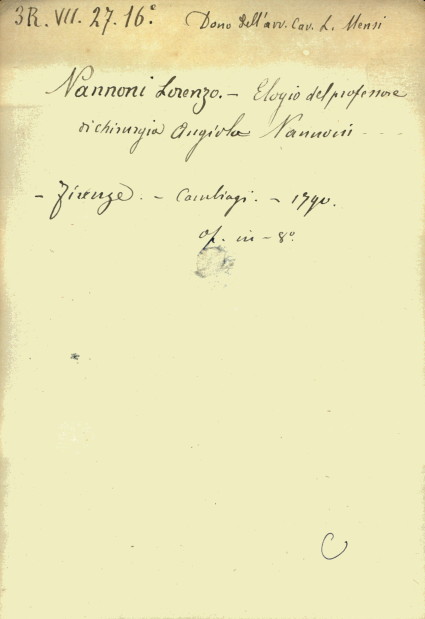 3R. VII. 27. 16.e Dono dell'avv. Cav. L. Mensi
Nannoni Lorenzo. - Elogio del professore
di chirurgia Angiolo Nannoni - - -
- Firenze. - Cambiagi. - 1790.
op. in - 8.°
C